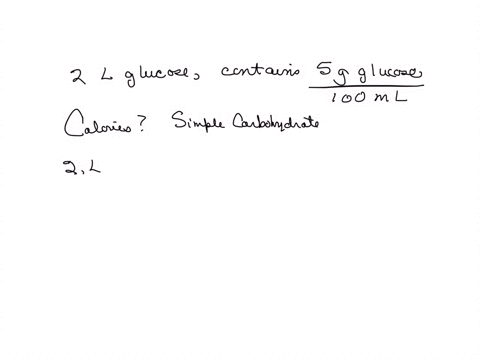 2 L glucose, contains 5 g glucose
100 mL
Calories? Simple Carbohydrate
2, L